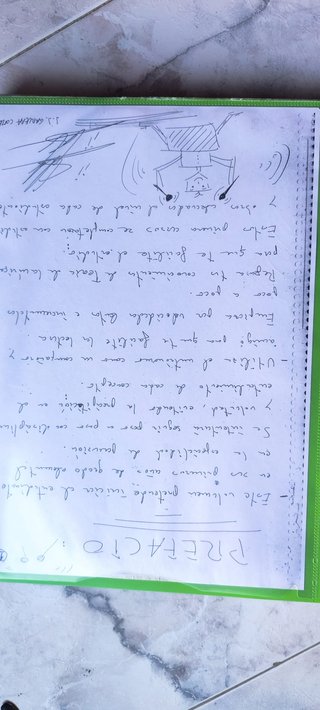 PREFACIO:
- Este volumen pretende iniciar el estudiante
en sus primeros años de grado elemental
en la especialidad de percusión
Se intentará seguir poco a poco con disciplina
y voluntad, evitando la
estudiante de cada concepto.
- Utiliza el metrónomo como un compañero y
amigo para que te facilite la lectura.
Empieza por velocidades lentas e incrementa
poco a poco.
Repasa tus conocimientos de Teoría de la música
para que te facilite el estudio.
Estos primeros cursos se completan con
y otros elevarán el nivel de cada estudiante